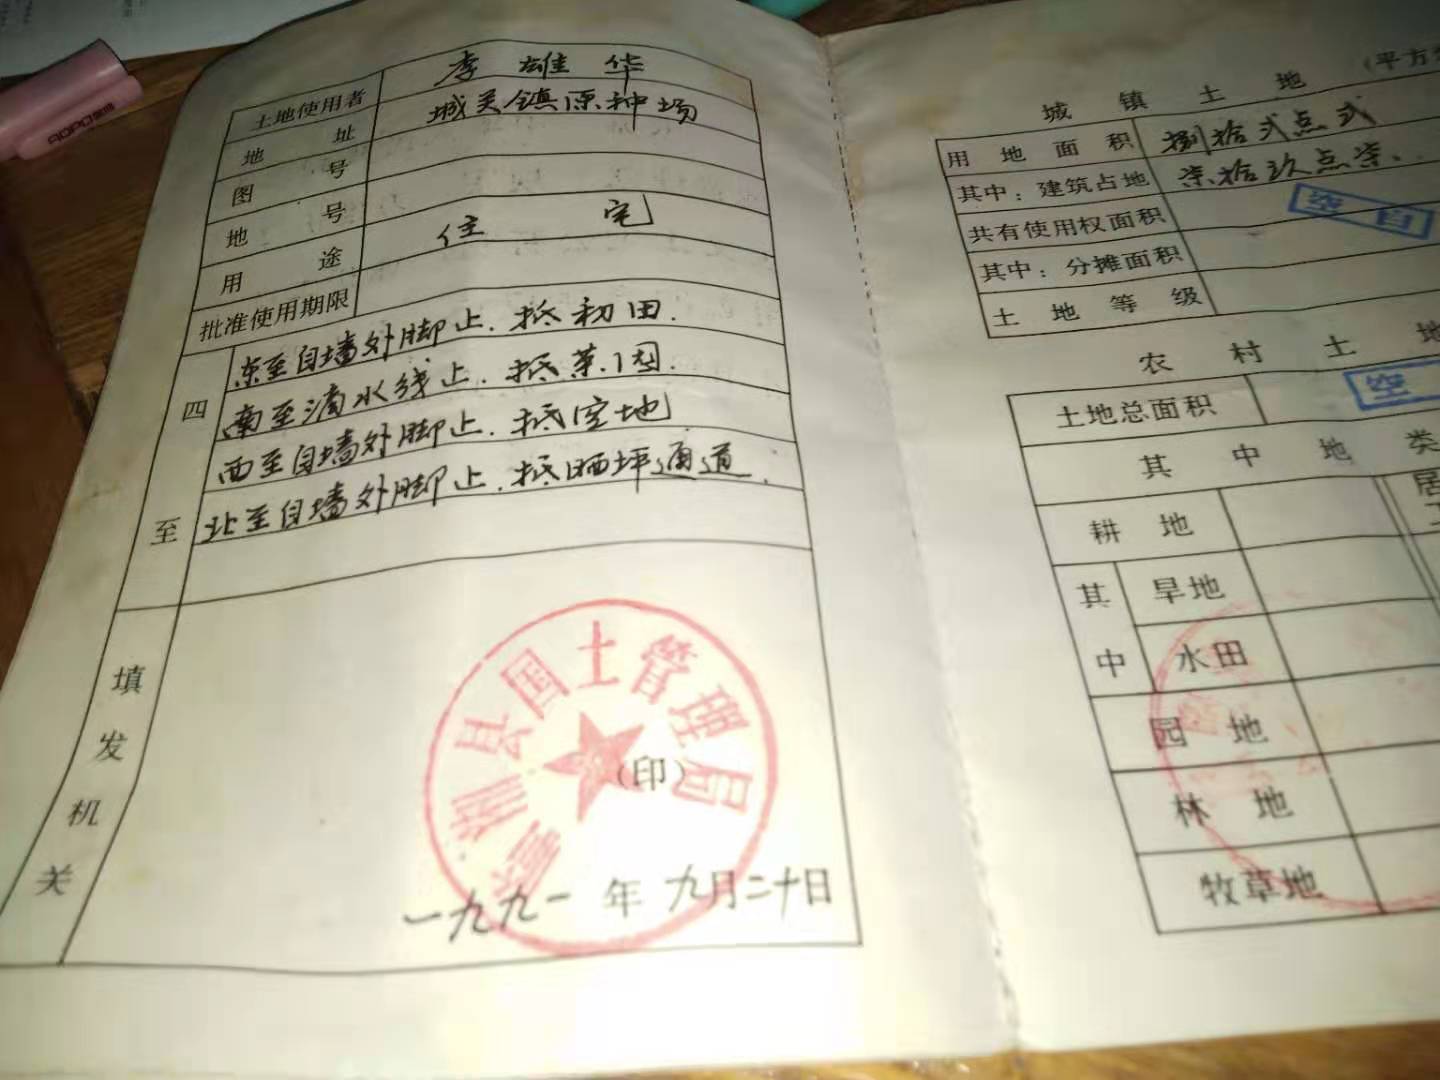 土地使用者 李雄华
地址 城关镇原种场
图号
地号
用途 住宅
批准使用期限
四至
东至自墙外脚止.抵初田.
南至滴水线止.抵菜园.
西至自墙外脚止.抵空地
北至自墙外脚止.抵晒坪通道.
填发机关
县国土管理局
(印)
一九九一年九月二十日
城镇土地 (平方
用地面积 捌拾弍点弍
其中:建筑占地 柒拾玖点柒
共有使用权面积 空白
其中:分摊面积
土地等级
农村土地
土地总面积 空
其中地类
耕地 居
其中 旱地
水田
园地
林地
牧草地